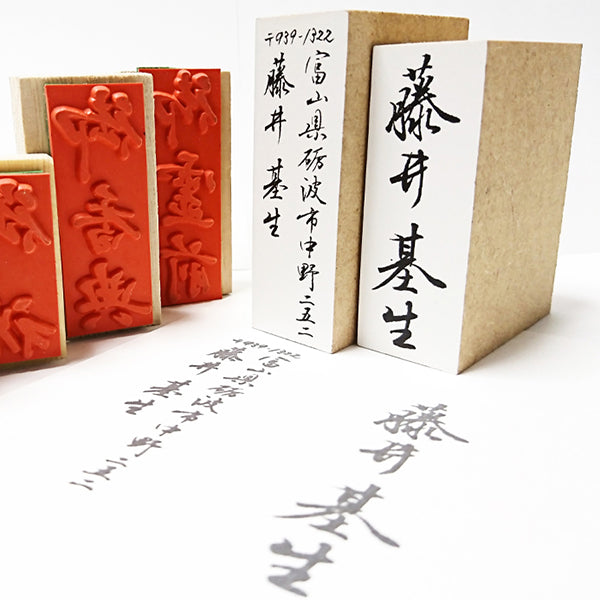 御香典
御霊前
〒939-1322
富山県砺波市中野二五二
藤井 基生
藤井 基生
〒939-1322
富山県砺波市中野二五二
藤井 基生
藤井 基生